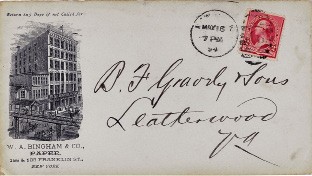 Return in 5 Days if not Called for
MAY 16
7 PM
94
B. F. Gravely & Sons
Leatherwood
Va
W. A. BINGHAM & CO.,
PAPER,
FRANKLIN ST.,
NEW YORK